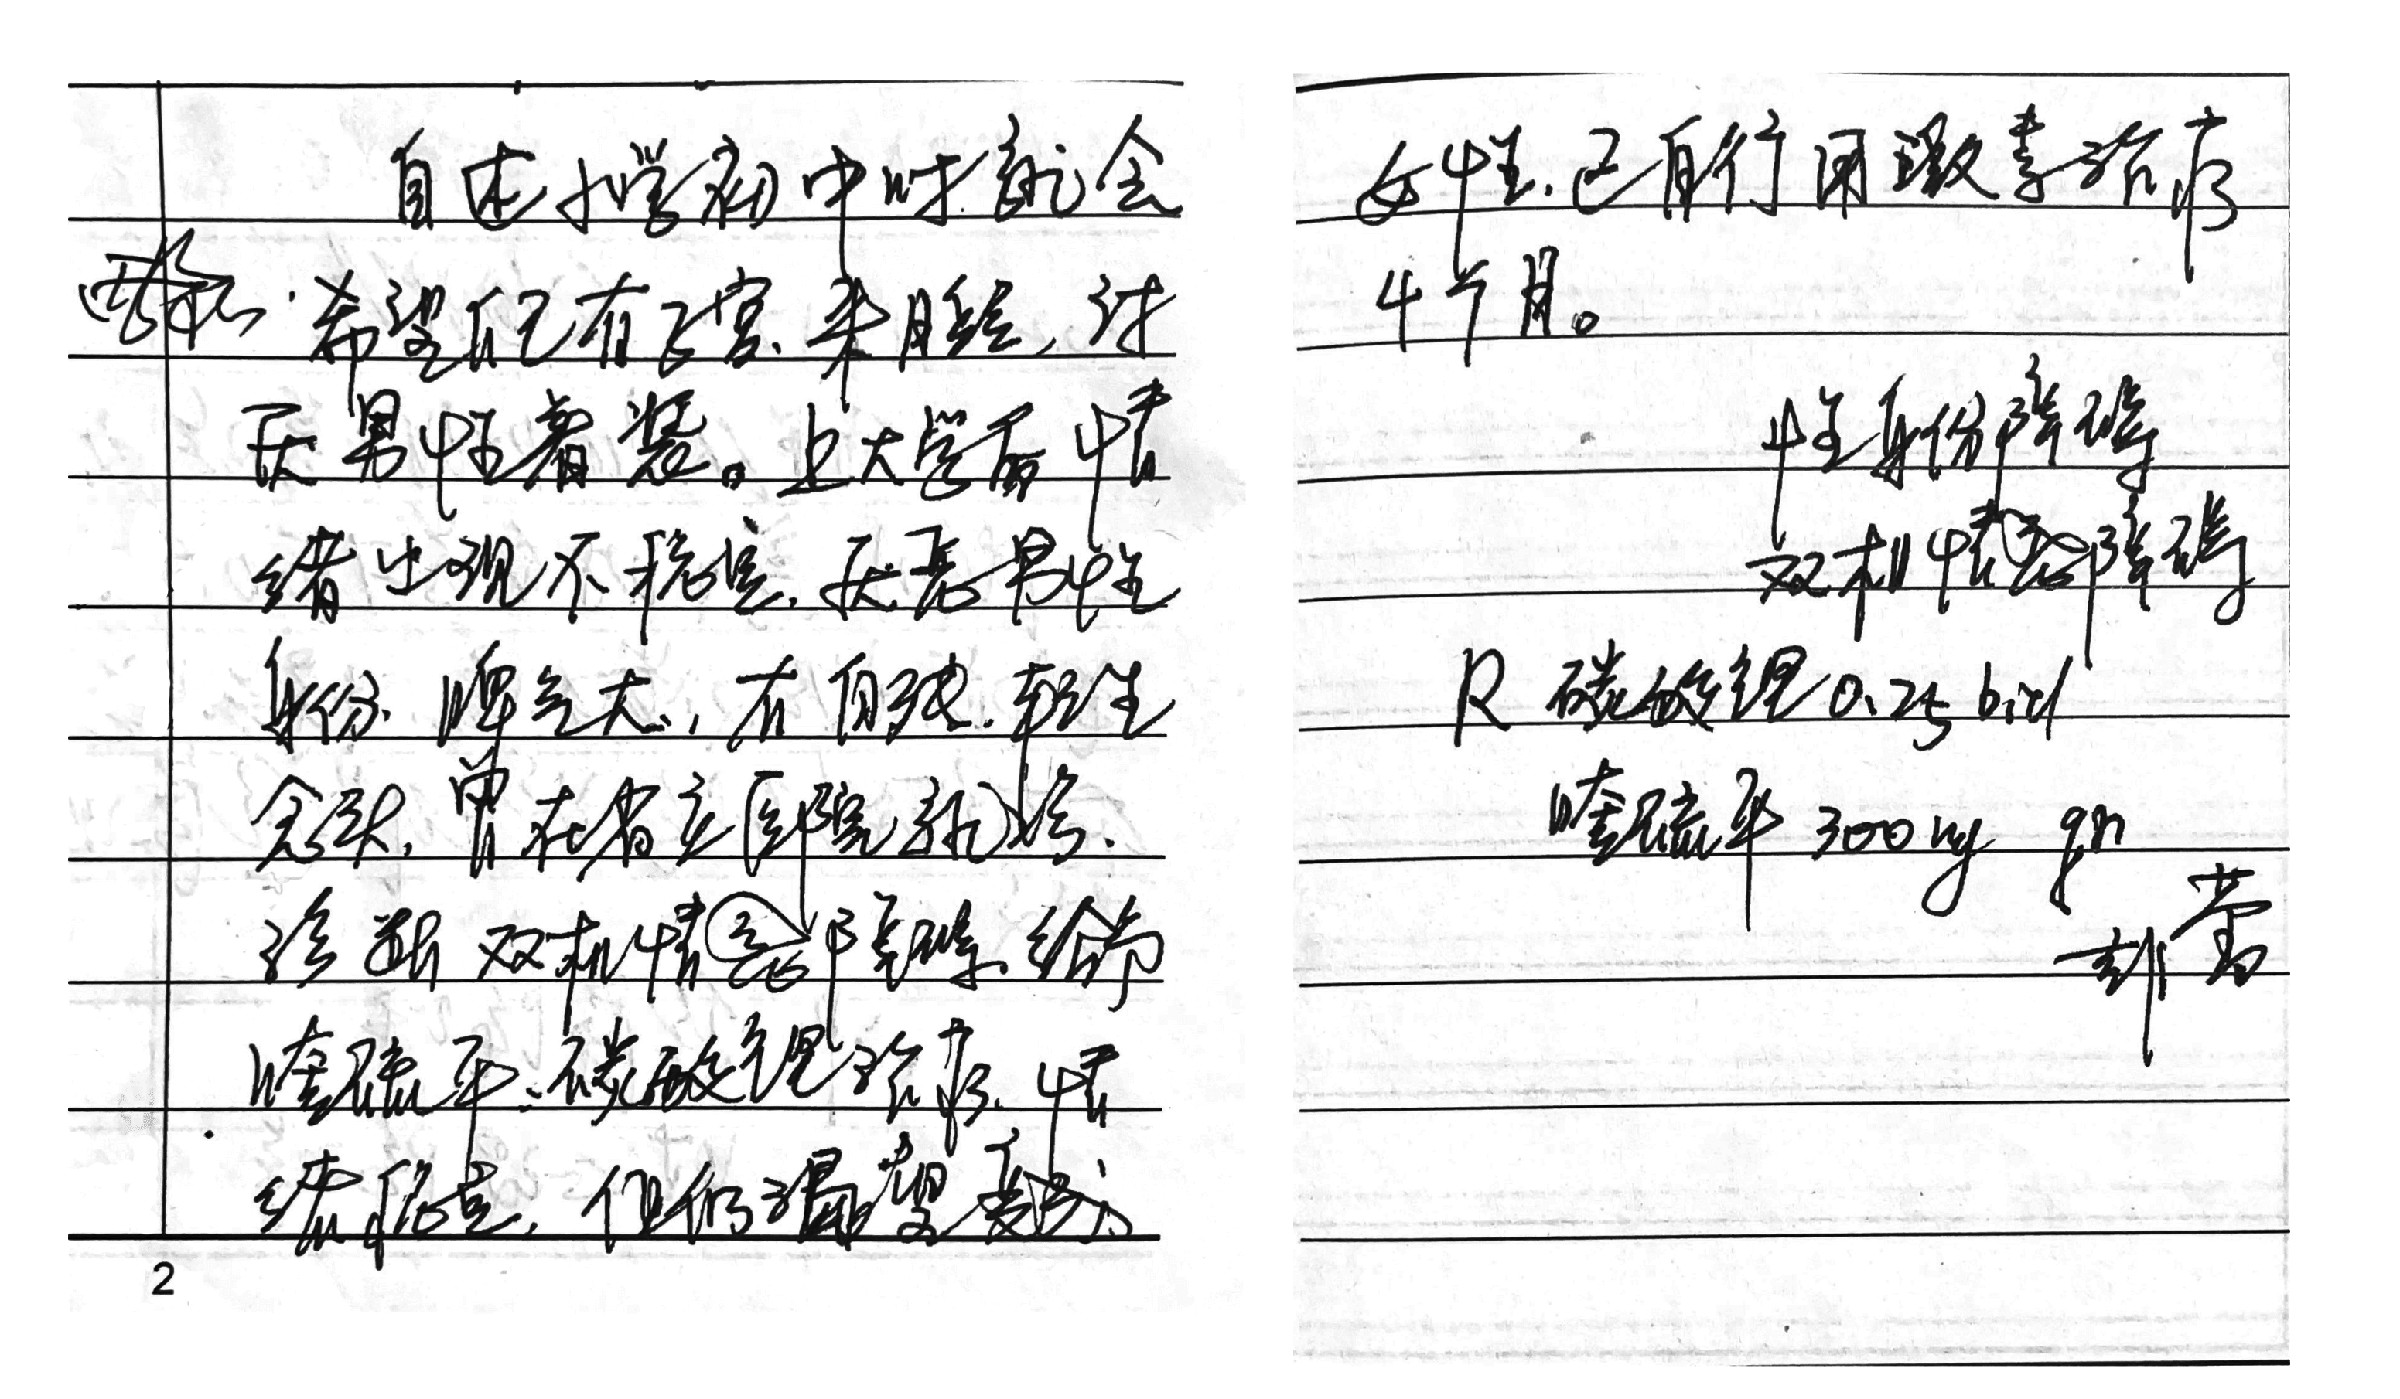 自述小学初中时就会
希望自己有子宫、来月经，讨
厌男性着装。上大学后情
绪出现不稳定、厌恶男性
身份、脾气大、有自残、轻生
念头，曾在省立医院就诊、
诊断双相情感障碍、给予
喹硫平、碳酸锂治疗、情
绪稳定，但仍渴望变成
2
女性、已自行用激素治疗
4个月。
性身份障碍
双相情感障碍
R 碳酸锂 0.25 bid
喹硫平 300mg qn